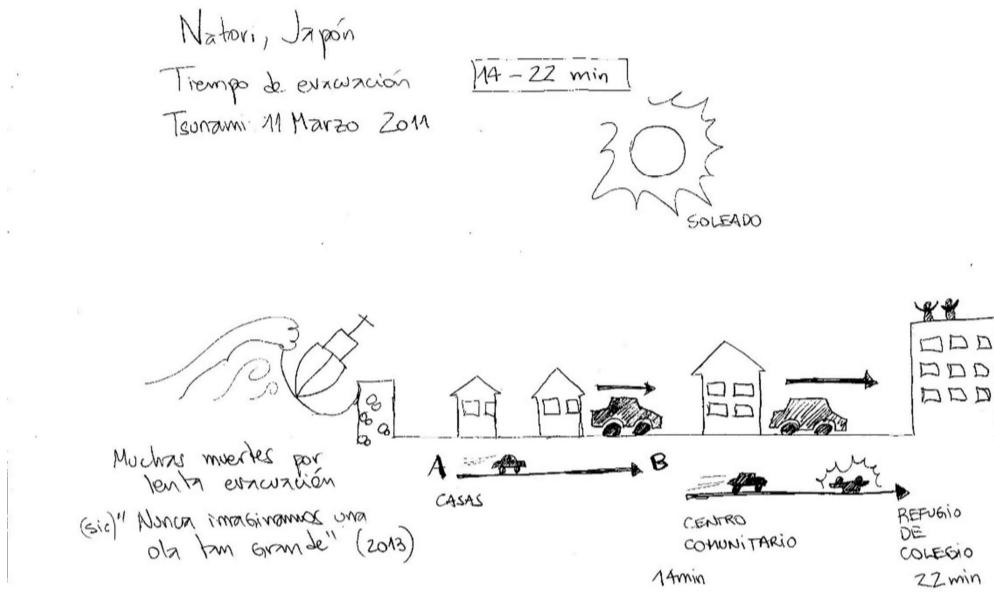 Natori, Japón
Tiempo de evacuación
14 - 22 min
Tsunami 11 Marzo 2011
SOLEADO
Muchas muertes por
lenta evacuación
(sic)" Nunca imaginamos una
ola tan grande" (2013)
A
B
CASAS
CENTRO
COMUNITARIO
14min
REFUGIO
DE
COLEGIO
22min